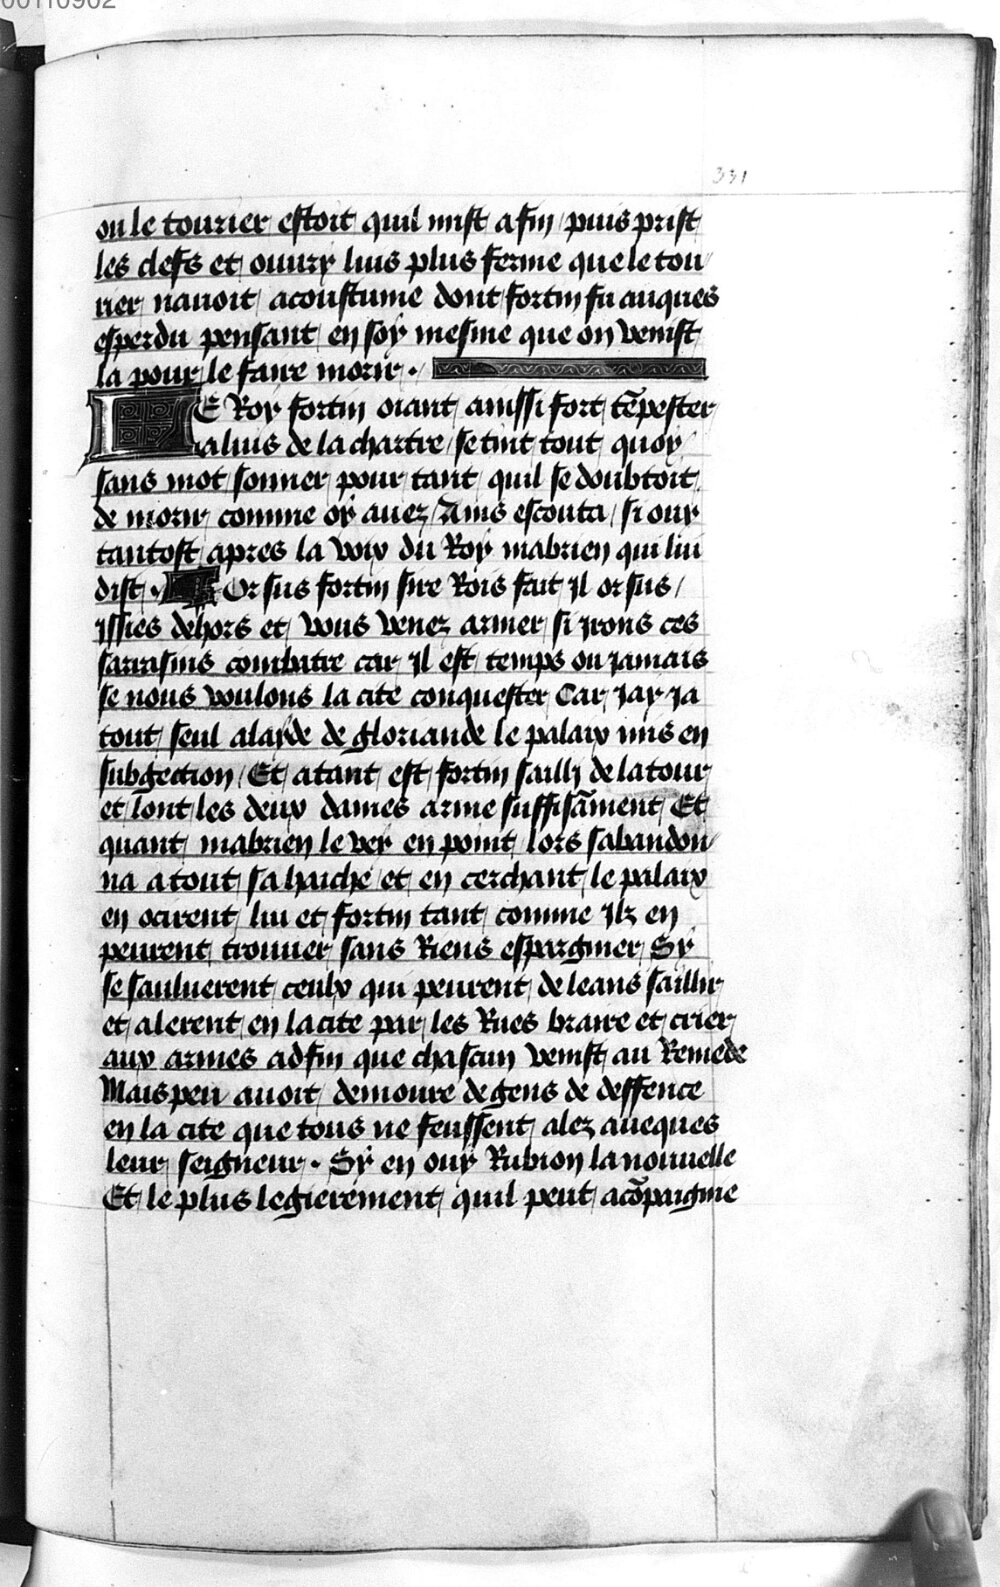 00110902
331
ou le tourier estoit quil mist a fin / puis prist
les clefs et ouury luis plus ferme que le tou/
rier nauoit acoustume dont fortin fu auques
esperdu pensant en soy mesme que on venist
la pour le faire morir .
LE Roy fortin oiant ainssi fort te᷑pester
a luis de la chartre / se tint tout quoy
sans mot sonner pour tant quil se doubtoit
de morir comme oy auez / Ains escouta / si ouy
tantost apres la voix du Roy mabrien qui lui
dist . Or sus fortin sire Rois fait Jl or sus /
Jssies dehors et vous venez armer si Jrons ces
sarrasins combatre car Jl est temps ou Jamais
se nous voulons la cite conquester Car Jay Ja
tout seul alayde de gloriande le palaix mis en
subgection / Et atant est fortin sailly de la tour
et lont les deux dames arme suffisa᷑ment Et
quant mabrien le vey en point lors sabandon/
na a tout sa hache et en cerchant le palaix
en ocirent lui et fortin tant comme Jlz en
peurent trouuer sans Riens espargnier Sy
se sauluerent ceulx qui peurent de leans saillir
et alerent en la cite par les Rues braire et crier
aux armes adfin que chascun venist au Remede
Mais peu auoit demoure de gens de deffence
en la cite que tous ne feussent alez aueques
leur seigneur . Sy en ouy Rubion la nouuelle
Et le plus legierement quil peut aco᷑paignie